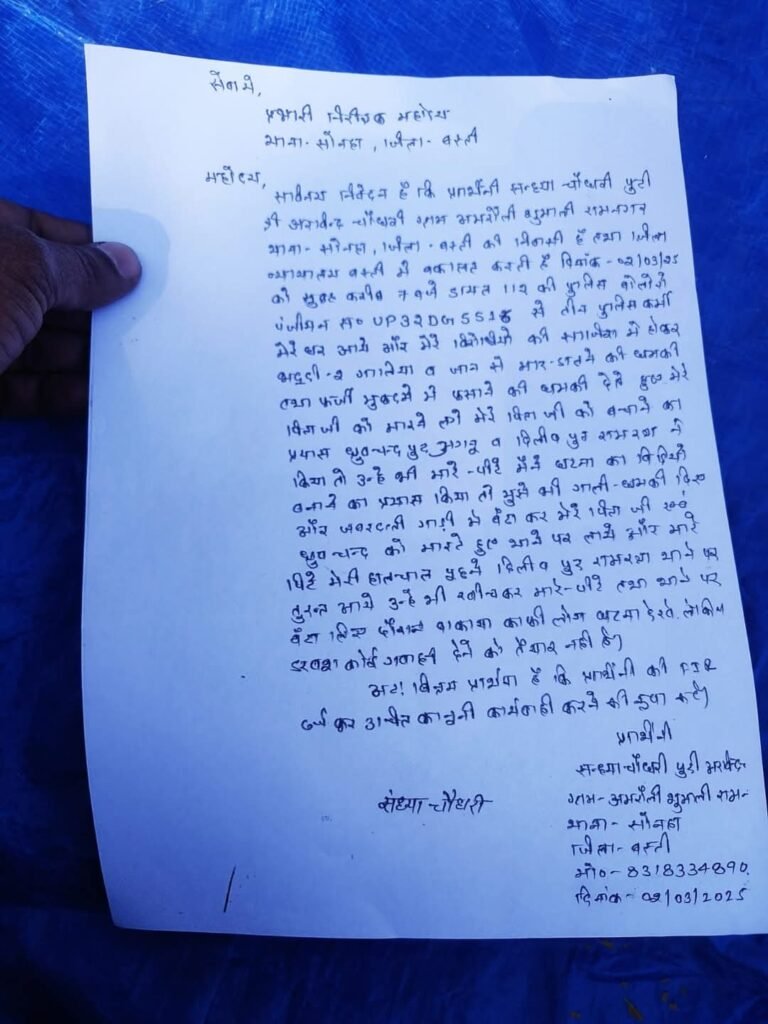 सेवा मे,
प्रभारी निरीक्षक महोदय
थाना- सोनहा, जिला- बस्ती
महोदय,
सविनय निवेदन है कि प्रार्थिनी सन्ध्या चौधरी पुत्री
श्री अरविन्द चौधरी ग्राम अमरौली शुमाली रामनगर
थाना- सोनहा, जिला- बस्ती की निवासी हूँ तथा जिला
न्यायालय बस्ती मे वकालत करती हूँ दिनांक- 02/03/25
को सुबह करीब 7 बजे डायल 112 की पुलिस बोलोरो
पंजीयन सं० UP32DG5515 से तीन पुलिस कर्मी
मेरे घर आये और मेरे विरोधियो की साजिश मे होकर
भद्दी-2 गालिया व जान से मार-डालने की धमकी
तथा फर्जी मुकदमे मे फसाने की धमकी देते हुए मेरे
पिता जी को मारने लगे मेरे पिता जी को बचाने का
प्रयास ध्रुवचन्द पुत्र अगनू व दिलीप पुत्र रामरथ ने
किया तो उन्हे भी मारे-पीटे मैने घटना का विडियो
बनाने का प्रयास किया तो मुझे भी गाली-धमकी दिए
और जबरदस्ती गाड़ी मे बैठा कर मेरे पिता जी एवं
ध्रुवचन्द को मारते हुए थाने पर लाये और मारे
पिटे मेरी हालचाल पुछने दिलीप पुत्र रामरथ थाने पर
तुरन्त आये उन्हे भी खींचकर मारे-पीटे तथा थाने पर
बैठा लिए दौरान वाकाया काफी लोग घटना देखे. लेकिन
डरवश कोई गवाही देने को तैयार नही है।
अतः विनम्र प्रार्थना है कि प्रार्थिनी की FIR
दर्ज कर उचित कानूनी कार्यवाही करने की कृपा करें।
प्रार्थिनी
सन्ध्या चौधरी पुत्री अरविन्द
ग्राम- अमरौली शुमाली राम-
थाना- सोनहा
संध्या चौधरी
जिला- बस्ती
मो०- 8318334890.
दिनांक- 02/03/2025